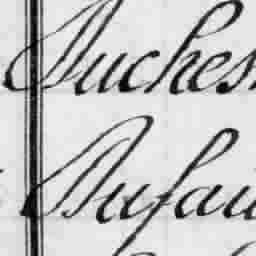 Duches
Dufau